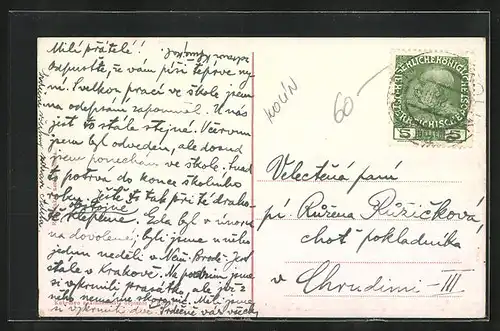 Milí přátelé!!
Odpusťte, že vám píši teprve ny-
ní. Svelkou prací ve škole jsem
na odepsání zapomněl. U nás
jest to stále stejné. V červnu
jsem byl odveden, ale dosud
jsem ponechán ve škole. Snad
to potrvá do konce školního
roku. Jestě to tak při té draho-
tě klepeme. Gola byl v únoru
na dovolené; byli jsme u něho
jednu neděli v Něm. Brodě. Jest
stále v Krakově. Na podzim jsme
si vykrmili prasátka, ale již z
něho nemáme skoro nic. Měli jsme
si vykrmiti dvě. Srdečně vás všechy
KOLÍN
60
5 HELLER 5
Velectěná paní
pí. Růžena Růžičková,
choť pokladníka
v Chrudimi-III.